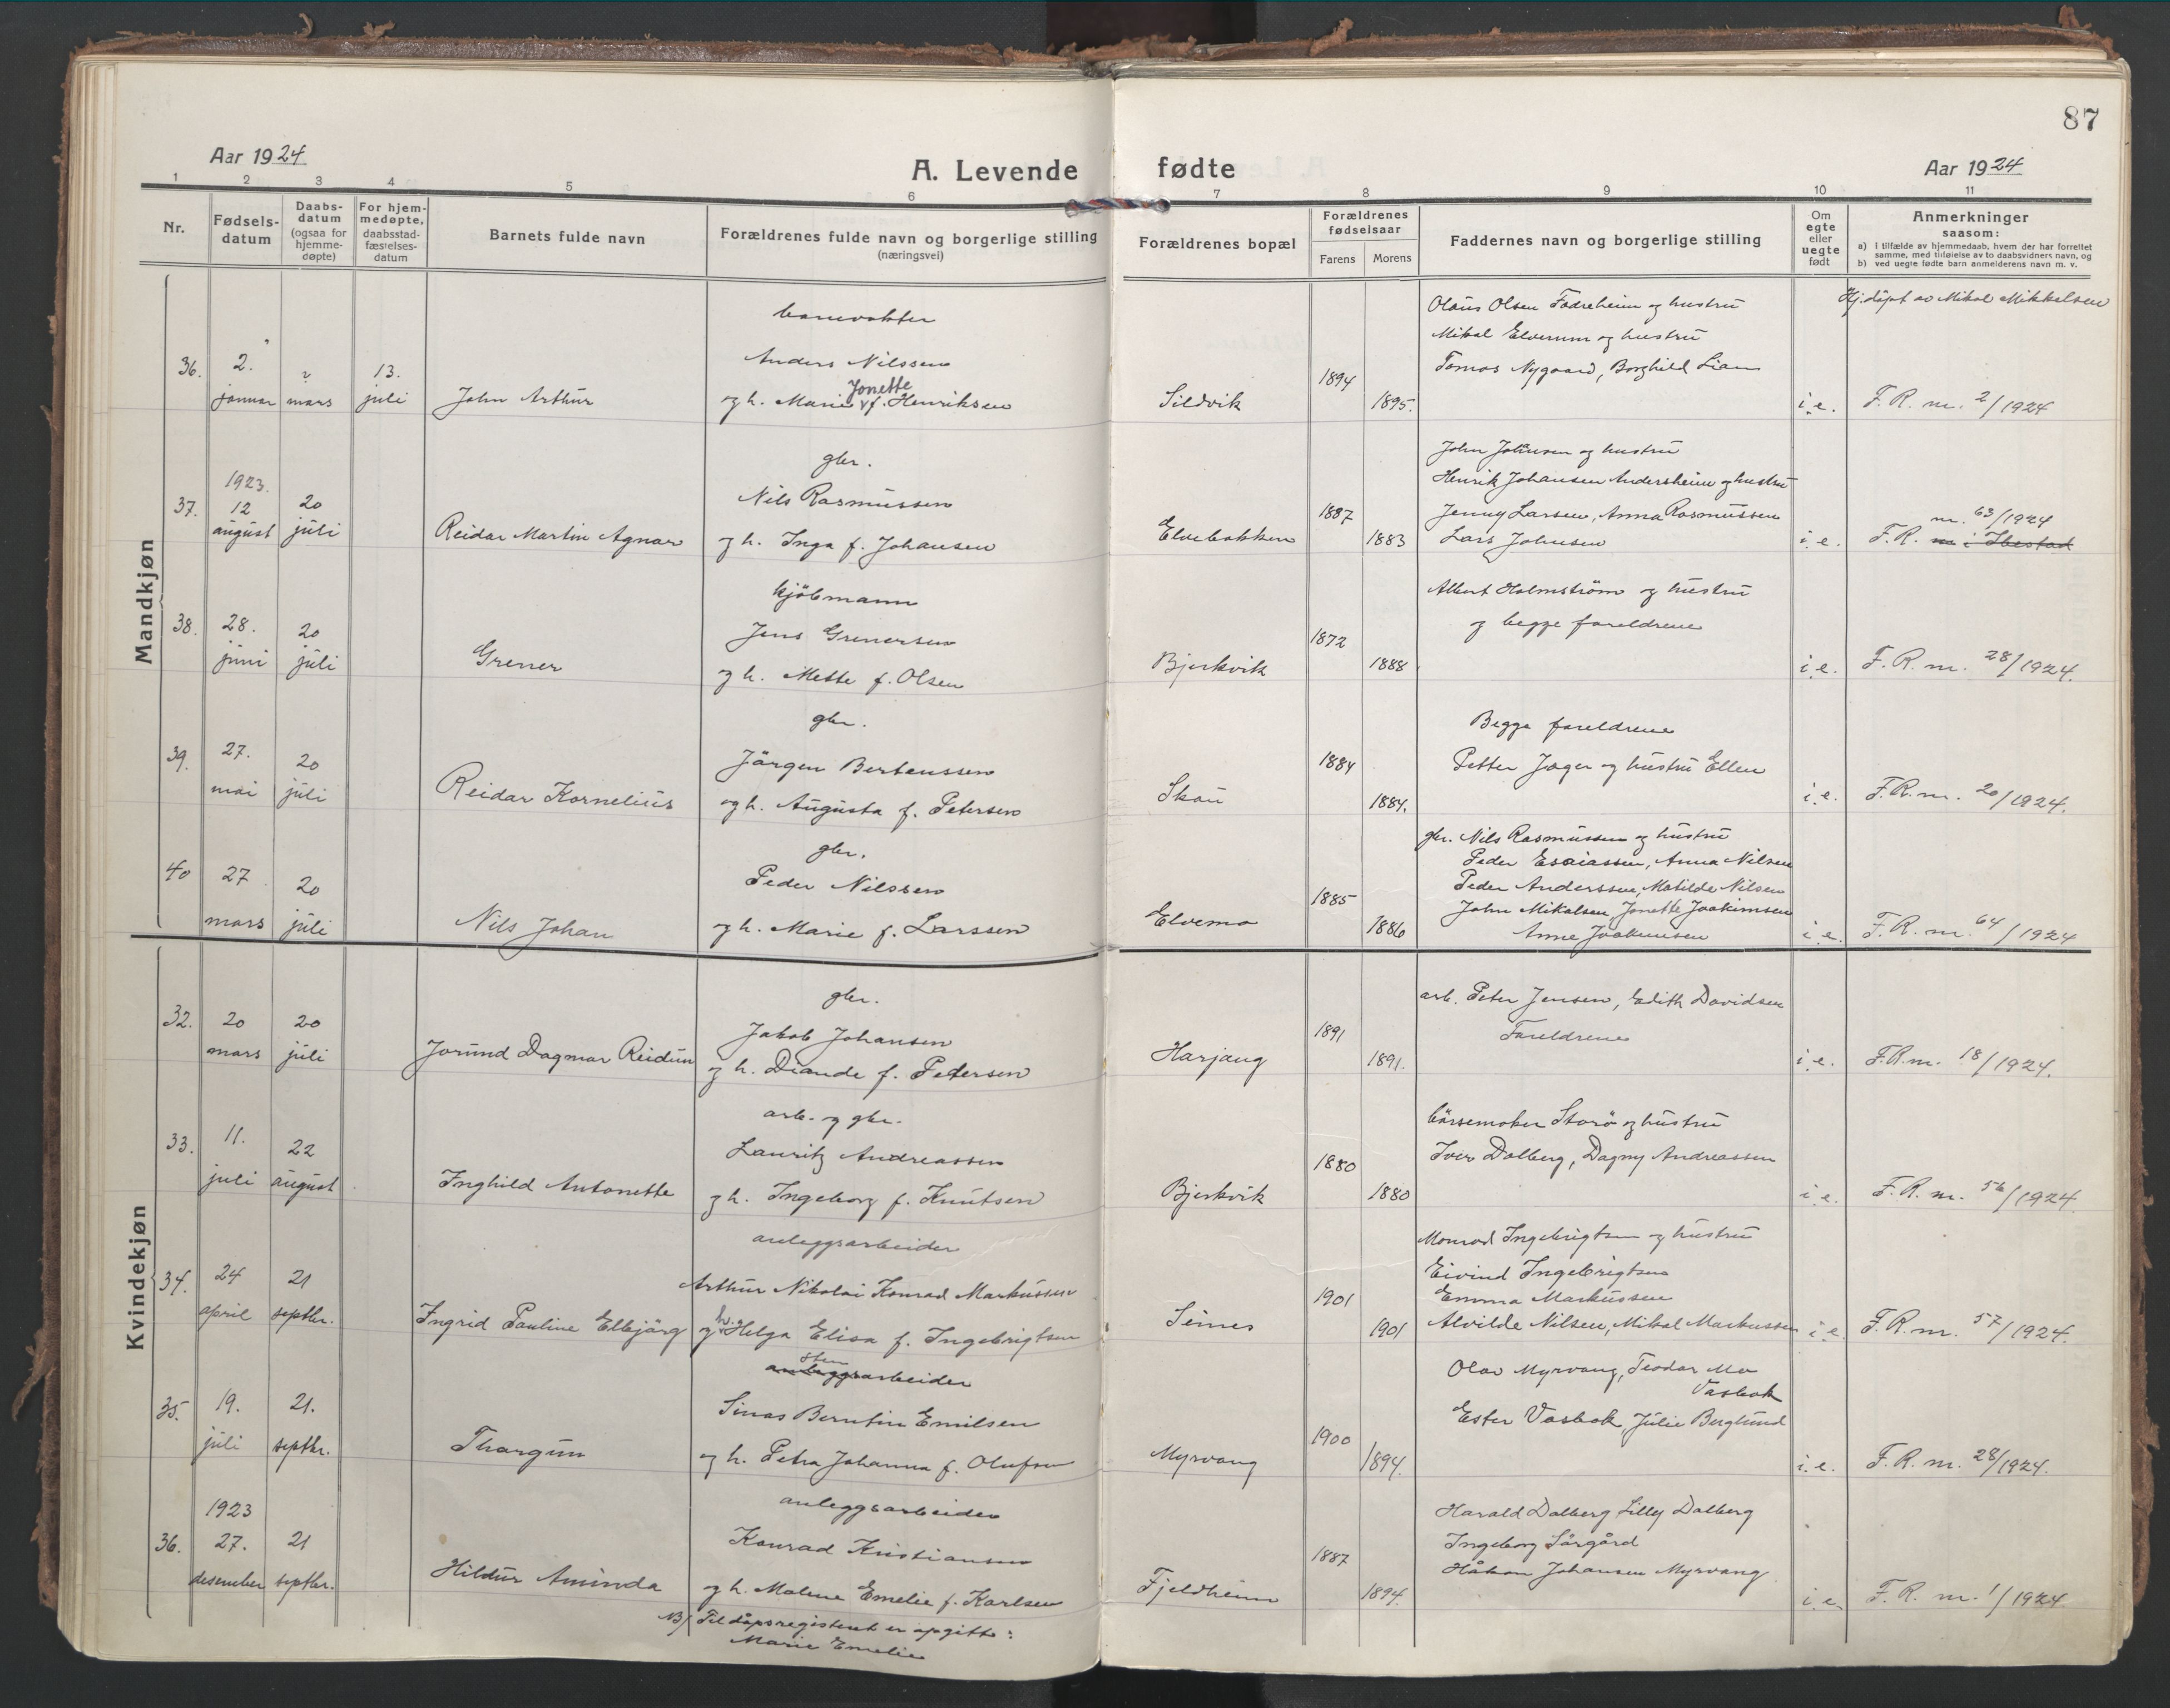 87
Aar 1924
A. Levende fødte
Aar 1924
1 2 3 4 5 6 7 8 9 10 11
Nr.
Fødsels-
datum
Daabs-
datum
(ogsaa for
hjemme-
døpte)
For hjem-
medøpte,
daabsstad-
fæstelses-
datum
Barnets fulde navn
Forældrenes fulde navn og borgerlige stilling
(næringsvei)
Forældrenes bopæl
Forældrenes
fødselsaar
Farens Morens
Faddernes navn og borgerlige stilling
Om
egte
eller
uegte
født
Anmerkninger
saasom:
a) I tilfælde av hjemmedaab, hvem der har forrettet
samme, med tilføielse av to daabsvidners navn, og
b) ved uegte fødte barn anmelderens navn m. v.
Mandkjøn
36.
2.
januar
?
mars
13.
juli
John Arthur
banevokter
Anders Nilssen
Jonette
og h. Marie f. Henriksen
Sildvik
1894
1895.
Olaus Olsen Fadreheim og hustru
Mikal Elverum og hustru
Tomas Nygaard, Borghild Lian
i.e.
Hj.døpt av Mikal Mikkelsen
F. R. nr. 2/1924
37.
1923.
12
august
20
juli
Reidar Martin Agnar
gbr.
Nils Rasmussen
og h. Inga f. Johansen
Elvebakken
1887
1883
John Johnsen og hustru
Henrik Johansen Andersheim og hustru
Jenny Larsen, Anna Rasmussen
Lars Johnsen
i.e.
nr. 63/1924
F. R. nr i Ibestad
38.
28.
juni
20
juli
Grener
kjøbmann
Jens Grenersen
og h. Mette f. Olsen
Bjerkvik
1872
1888
Albert Holmstrøm og hustru
og begge foreldrene
i.e.
F. R. nr. 28/1924.
39.
27.
mai
20
juli
Reidar Kornelius
gbr.
Jörgen Bertenssen
og h. Augusta f. Petersen
Skou
1884
1884.
Begge foreldrene
Petter Jæger og hustru Ellen
i.e.
F. R. nr. 20/1924.
40
27
mars
20
juli
Nils Johan
gbr.
Peder Nilssen
og h. Marie f. Larssen
Elvemo
1885
1886
gbr. Nils Rasmussen og hustru
Peder Esaiassen, Anna Nilsen
Peder Anderssen, Matilde Nilsen
John Mikalsen, Jonette Joakimsen
Anne Joakimsen
i.e.
F. R. nr. 64/1924
Kvindekjøn
32.
20
mars
20
juli
Jorund Dagmar Reidun
gbr.
Jakob Johansen
og h. Diande f. Petersen
Harjang
1891
1891.
arb. Peter Jensen, Edith Davidsen
Foreldrene
i.e.
F. R. nr. 18/1924.
33.
11.
juli
22
august
Inghild Antonette
arb. og gbr.
Lauritz Andreassen
og h. Ingeborg f. Knutsen
Bjerkvik
1880
1880
børsemaker Storø og hustru
Iver Dalberg, Dagny Andreassen
i.e.
F. R. nr. 56/1924.
34.
24
april
21
septbr.
Ingrid Pauline Elbjörg
anleggsarbeider
Arthur Nikolai Konrad Markussen
og h. Helga Elisa f. Ingebrigtsen
Seines
1901
1901
Monrad Ingebrigtsen og hustru
Eivind Ingebrigtsen
Emma Markussen
Alvilde Nilsen, Mikal Markussen
i.e.
F. R. nr. 57/1924.
35.
19.
juli
21.
septbr.
Thorgun
sten
anleggsarbeider
Sinas Berntin Emilsen
og h. Petra Johanna f. Olufsen
Myrvang
1900
1894.
Olav Myrvang, Teodor Mo
Vasbak
Ester Vasbak, Julie Berglund
i.e.
F. R. nr. 28/1924.
36.
1923
27.
desember
21
septbr.
Hildur Aminda
anleggsarbeider
Konrad Kristiansen
og h. Malene Emelie f. Karlsen
NB/ Til dåpsregisteret er opgitt:
Marie Emelie
Fjeldheim
1887
1894.
Harald Dalberg Lilly Dalberg
Ingeborg Sørgård
Håkon Johansen Myrvang
i.e.
F. R. nr. 1/1924